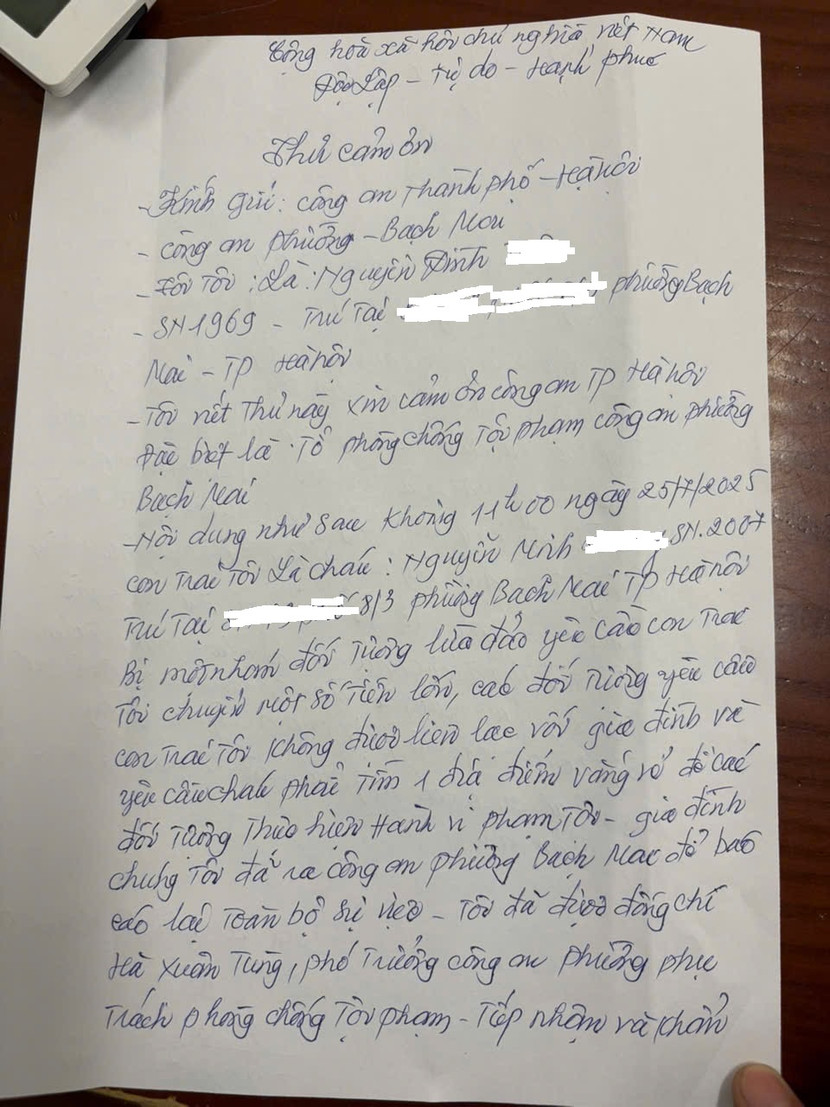 Cộng hoà xã hội chủ nghĩa việt Nam
Độc Lập - Tự do - Hạnh phúc
Thư cảm ơn
- Kính gửi: công an Thành phố - Hà Nội
- công an phường - Bạch Mai
- Tên Tôi: Là: Nguyễn Đình
- SN 1969 - Trú Tại phường Bạch
Mai - TP Hà Nội
- Tôi viết Thư này xin cảm ơn công an TP Hà Nội
Đặc biệt là Tổ phòng chống Tội phạm công an phường
Bạch Mai
- Nội dung như sau Khoảng 11h00 ngày 25/7/2025
con Trai Tôi Là cháu: Nguyễn Minh SN. 2007
Trú Tại 8/3 phường Bạch Mai TP Hà Nội
Bị một nhóm đối Tượng lừa đảo yêu cầu con Trai
Tôi chuyển một số Tiền lớn, các đối Tượng yêu cầu
con Trai Tôi không được liên lạc với gia đình và
yêu cầu cháu phải Tìm 1 địa điểm vắng vẻ để các
đối Tượng Thực hiện Hành vi phạm Tội - gia đình
chúng Tôi đã ra công an phường Bạch Mai để báo
cáo lại Toàn bộ sự việc - Tôi đã được đồng chí
Hà Xuân Tùng, phó Trưởng công an phường phụ
Trách phòng chống Tội phạm - Tiếp nhận và khẩn